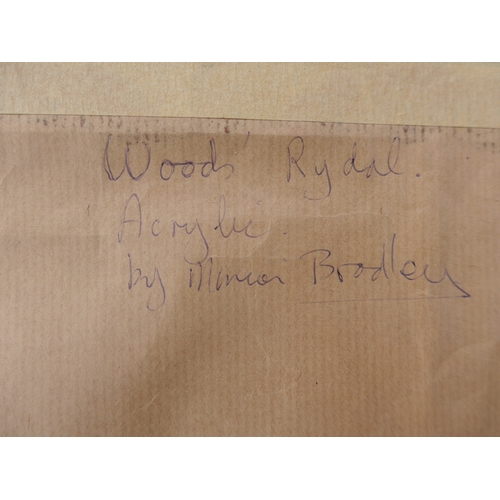 Woods' Rydal.
Acrylic.
by Bradley